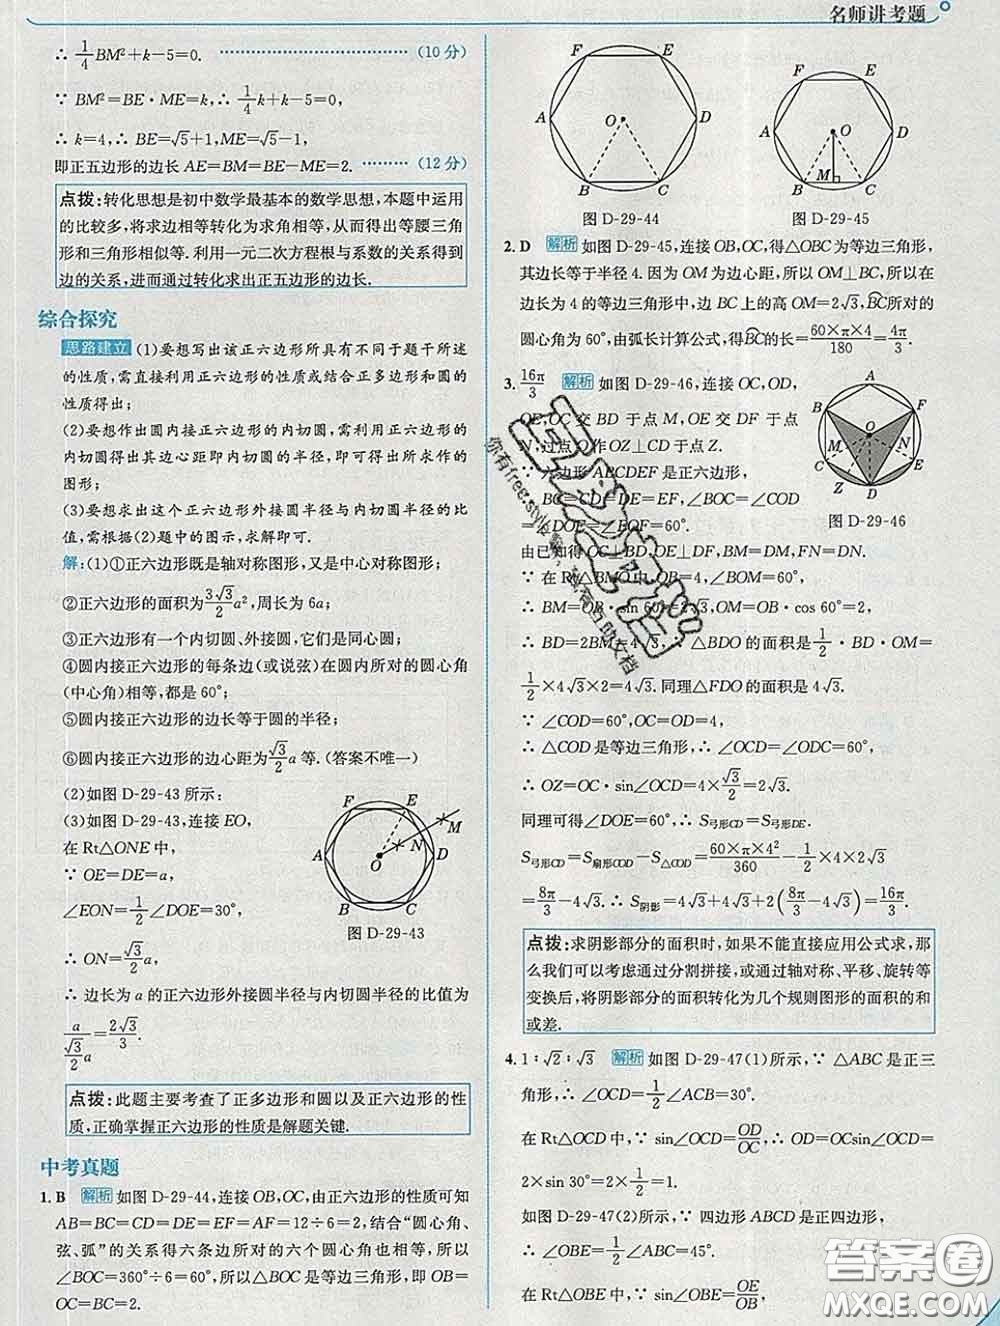 名师讲考题
∴ 1/4 BM²+k-5=0. ………………………… (10 分)
∵ BM²=BE·ME=k,∴ 1/4 k+k-5=0,
∴ k=4,∴ BE=√5+1,ME=√5-1,
即正五边形的边长 AE=BM=BE-ME=2. ……… (12 分)
点拨:转化思想是初中数学最基本的数学思想,本题中运用
的比较多,将求边相等转化为求角相等,从而得出等腰三角
形和三角形相似等. 利用一元二次方程根与系数的关系得到
边的关系,进而通过转化求出正五边形的边长.
综合探究
思路建立 (1)要想写出该正六边形所具有不同于题干所述
的性质,需直接利用正六边形的性质或结合正多边形和圆的
性质得出;
(2)要想作出圆内接正六边形的内切圆,需利用正六边形的
内切圆得出其边心距即内切圆的半径,即可得出所求作的
图形;
(3)要想求出这个正六边形外接圆半径与内切圆半径的比
值,需根据(2)题中的图示,求解即可.
解:(1)①正六边形既是轴对称图形,又是中心对称图形;
②正六边形的面积为 3√3/2 a²,周长为 6a;
③正六边形有一个内切圆、外接圆,它们是同心圆;
④圆内接正六边形的每条边(或说弦)在圆内所对的圆心角
(中心角)相等,都是 60°;
⑤圆内接正六边形的边长等于圆的半径;
⑥圆内接正六边形的边心距为 √3/2 a 等. (答案不唯一)
(2)如图 D-29-43 所示:
(3)如图 D-29-43,连接 EO,
在 Rt△ONE 中,
∵ OE=DE=a,
∠EON=1/2∠DOE=30°,
∴ ON=√3/2 a,
F E M N A O D B C
图 D-29-43
∴ 边长为 a 的正六边形外接圆半径与内切圆半径的比值为
a/(√3/2 a)=2√3/3.
点拨:此题主要考查了正多边形和圆以及正六边形的性
质,正确掌握正六边形的性质是解题关键.
中考真题
1. B 解析 如图 D-29-44,连接 OB,OC,由正六边形的性质可知
AB=BC=CD=DE=EF=AF=12÷6=2,结合“圆心角、
弦、弧”的关系得六条边所对的六个圆心角也相等,所以
∠BOC=360°÷6=60°,所以△BOC 是等边三角形,即 OB=
OC=BC=2.
F E A O D B C
图 D-29-44
F E A O D B M C
图 D-29-45
2. D 解析 如图 D-29-45,连接 OB,OC,得△OBC 为等边三角形,
其边长等于半径 4. 因为 OM 为边心距,所以 OM⊥BC,所以在
边长为 4 的等边三角形中,边 BC 上的高 OM=2√3,B͡C所对的
圆心角为 60°,由弧长计算公式,得B͡C的长=60×π×4/180=4π/3.
3. 16π/3 解析 如图 D-29-46,连接 OC,OD,
OE,OC 交 BD 于点 M,OE 交 DF 于点
N,过点 O 作 OZ⊥CD 于点 Z.
∵ 六边形 ABCDEF 是正六边形,
∴ BC=CD=DE=EF,∠BOC=∠COD
=∠DOE=∠EOF=60°.
由已知得 OC⊥BD,OE⊥DF,BM=DM,FN=DN.
A B F O M N C E Z D
图 D-29-46
∵ 在 Rt△BMO 中,OB=4,∠BOM=60°,
∴ BM=OB·sin 60°=2√3,OM=OB·cos 60°=2,
∴ BD=2BM=4√3,∴ △BDO 的面积是 1/2·BD·OM=
1/2×4√3×2=4√3. 同理△FDO 的面积是 4√3.
∵ ∠COD=60°,OC=OD=4,
∴ △COD 是等边三角形,∴ ∠OCD=∠ODC=60°,
∴ OZ=OC·sin∠OCD=4×√3/2=2√3.
同理可得∠DOE=60°,∴ S弓形CD=S弓形DE.
∴ S弓形CD=S扇形COD-S△COD=60×π×4²/360-1/2×4×2√3
=8π/3-4√3. ∴ S阴影=4√3+4√3+2(8π/3-4√3)=16π/3.
点拨:求阴影部分的面积时,如果不能直接应用公式求,那
么我们可以考虑通过分割拼接,或通过轴对称、平移、旋转等
变换后,将阴影部分的面积转化为几个规则图形的面积的和
或差.
4. 1∶√2∶√3 解析 如图 D-29-47(1)所示,∵ △ABC 是正三
角形,∴ ∠OCD=1/2∠ACB=30°.
在 Rt△OCD 中,∵ sin∠OCD=OD/OC,∴ OD=OCsin∠OCD=
2×sin 30°=1.
如图 D-29-47(2)所示,∵ 四边形 ABCD 是正四边形,
∴ ∠OBE=1/2∠ABC=45°.
在 Rt△OBE 中,∵ sin∠OBE=OE/OB,
答案圈
MXQE.COM